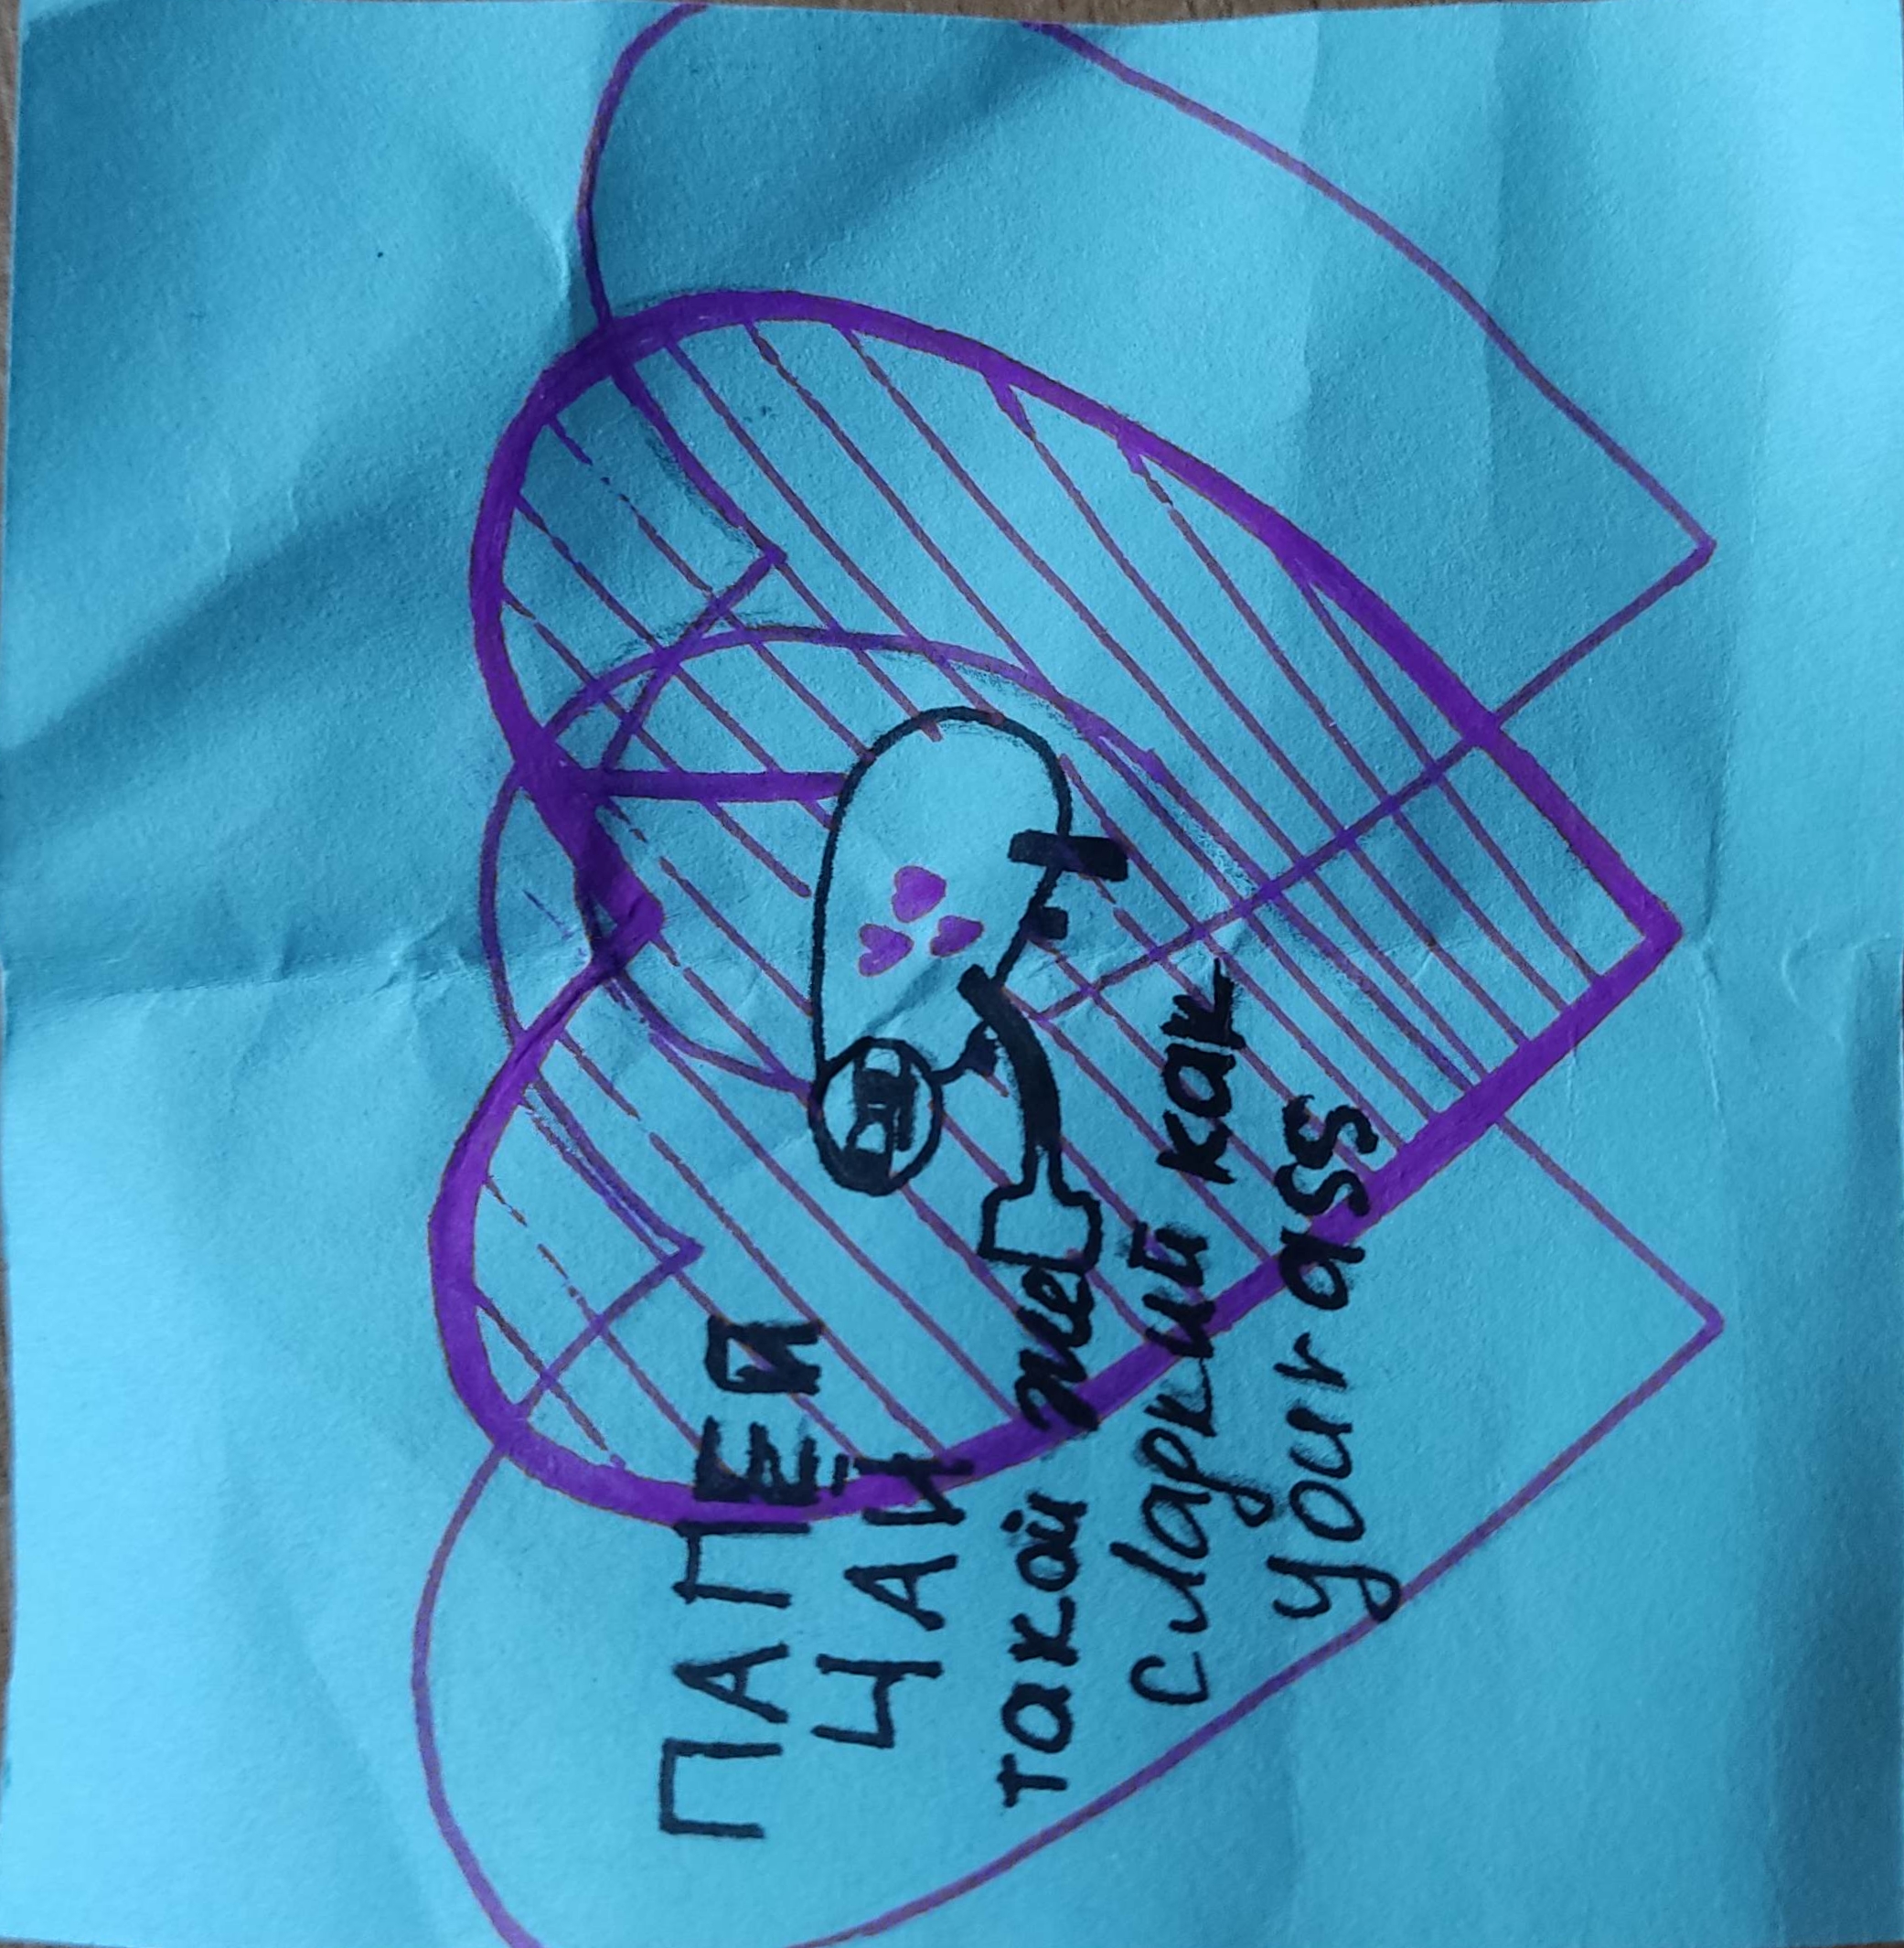 ПАПЕЙ
ЧАЙ
такой же
сладкий как
your ass